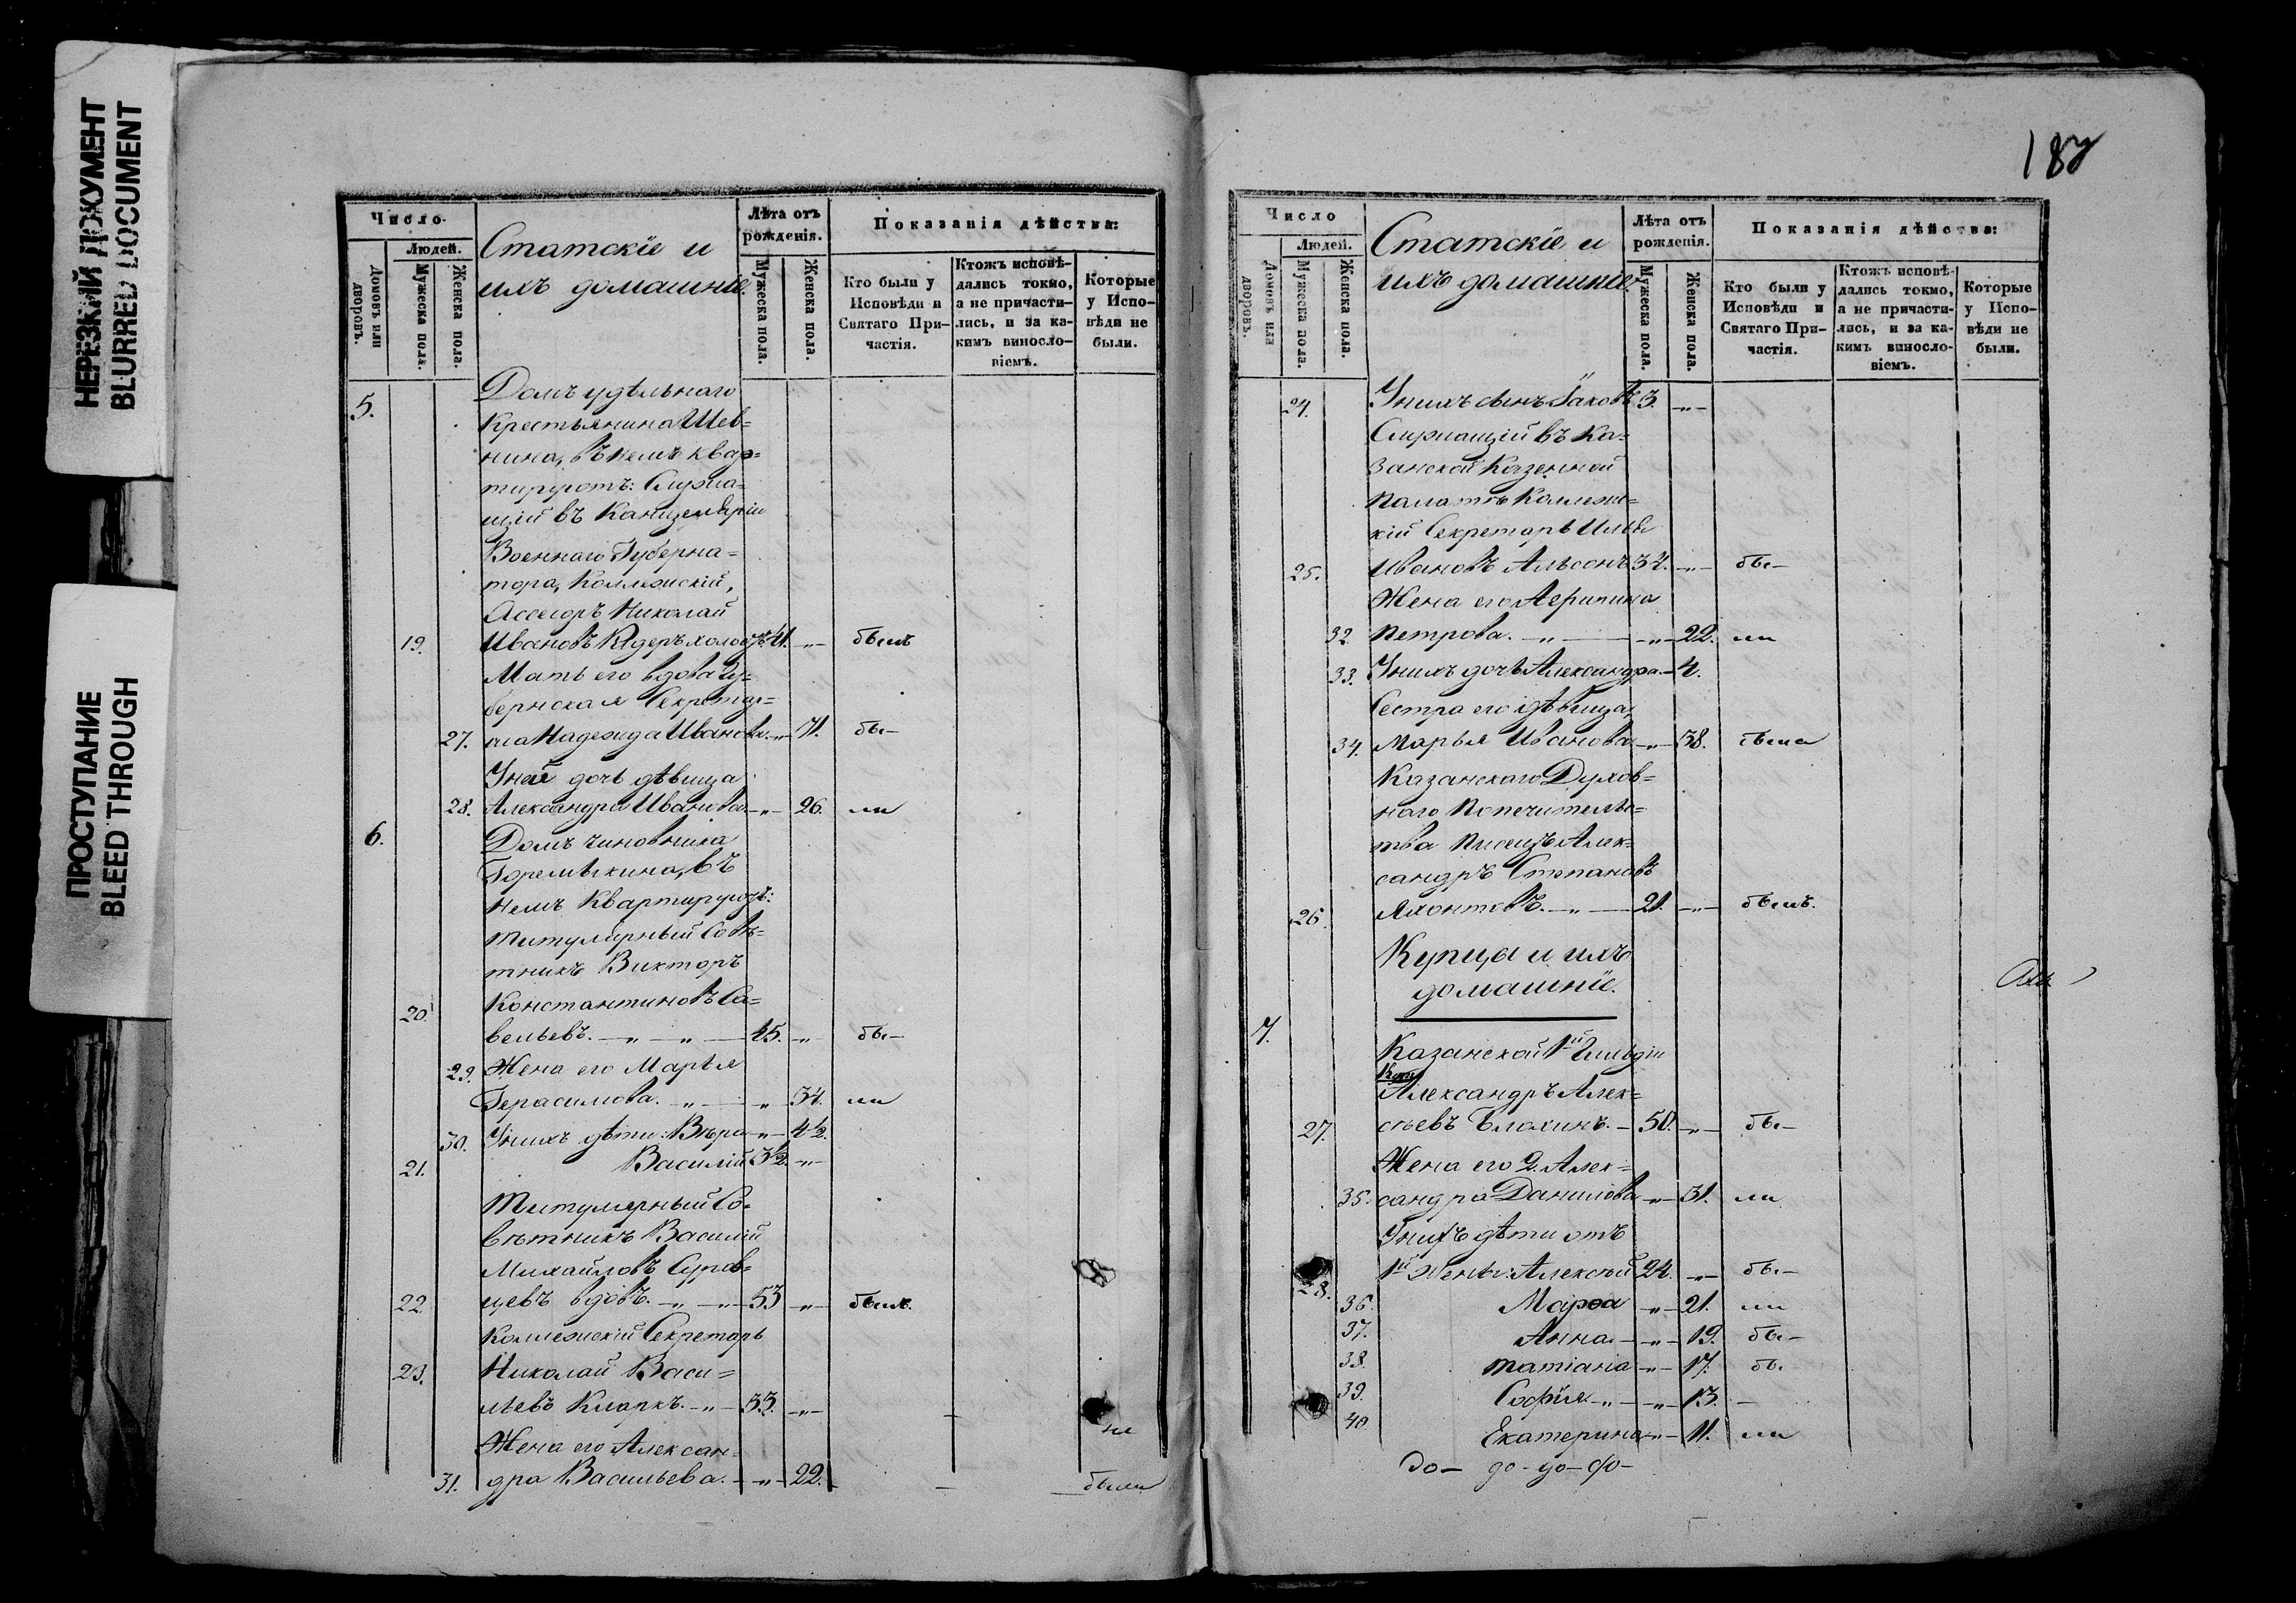 НЕРЕЗКИЙ ДОКУМЕНТ
BLURRED DOCUMENT
ПРОСТУПАНИЕ
BLEED THROUGH
Число
Людей.
Домовъ или дворовъ.
Мужеска пола.
Женска пола.
Статскіе и
ихъ домашніе.
Лѣта отъ рожденія.
Мужеска пола.
Женска пола.
Показанія дѣйства:
Кто были у Исповѣди и Святаго Причастія.
Ктожъ исповѣдались токмо, а не причастились, и за какимъ винословіемъ.
Которые у Исповѣди не были.
5. Домъ удѣльнаго
Крестьянина Шев=
нина, въ немъ квар=
тируютъ: Служа=
щій въ Канцеляріи
Военнаго Губерна=
тора, Коллежскій,
Ассесоръ Николай
19. Ивановъ холос 41. „ былъ
Мать его вдова Гу=
бернская Секретар=
27. ша Надежда Иванова. „ 71. бы–
У ней дочь дѣвица
28. Александра Иванова „ 26. ли
6. Домъ чиновника
Горемыкина, въ
немъ Квартируютъ:
Титулярный Совѣ=
тникъ Викторъ
20. Константиновъ Са=
вельевъ. „ „ 45. „ бы–
29. Жена его Марья
Герасимова. „ „ 34. ли
30. У нихъ дѣти: Вѣра „ 4½.
21. Василій 3½. „
Титулярный Со=
вѣтникъ Василій
Михайловъ Суров=
22. цевъ вдовъ. „ „ 53 „ былъ.
Коллежскій Секретарь
23. Николай Васи=
льевъ Кларкъ. „ 33. „ не
Жена его Алексан=
31. дра Васильева. „ 22. были
187
Число
Людей.
Домовъ или дворовъ.
Мужеска пола.
Женска пола.
Статскіе и
ихъ домашніе
Лѣта отъ рожденія.
Мужеска пола.
Женска пола.
Показанія дѣйства:
Кто были у Исповѣди и Святаго Причастія.
Ктожъ исповѣдались токмо, а не причастились, и за какимъ винословіемъ.
Которые у Исповѣди не были.
24. У нихъ сынъ Іаковъ 3. „
Служащій въ Ка=
занской Казенной
Палатѣ Коллежс=
кій Секретарь Илья
25. Ивановъ 34. „ бы–
Жена его Агрипина
32 Петрова. „ „ 22. ли
33. У нихъ дочь Александра. 4.
Сестра его дѣвица,
34. Марья Иванова „ 38. была
Казанскаго Духов=
наго Попечительс=
тва Писецъ Алек=
сандръ Степановъ
26. Яхонтовъ. „ 21. „ былъ.
Купцы и ихъ
домашніе.
7. Казанской 1й Гильдіи
Куп
Александръ Алек=
27. сѣевъ Блохинъ. 50. „ бы–
Жена его 2. Алек=
35. сандра Данилова „ 31. ли
У нихъ дѣти отъ
28. 1й жены: Алексѣй 24. „ бы–
36. Марѳа „ 21. ли
37. Анна „ 19. бы–
38. Татіана „ 17. бы
39. Софія „ „ 13. –
40 Екатерина „ 11. ли